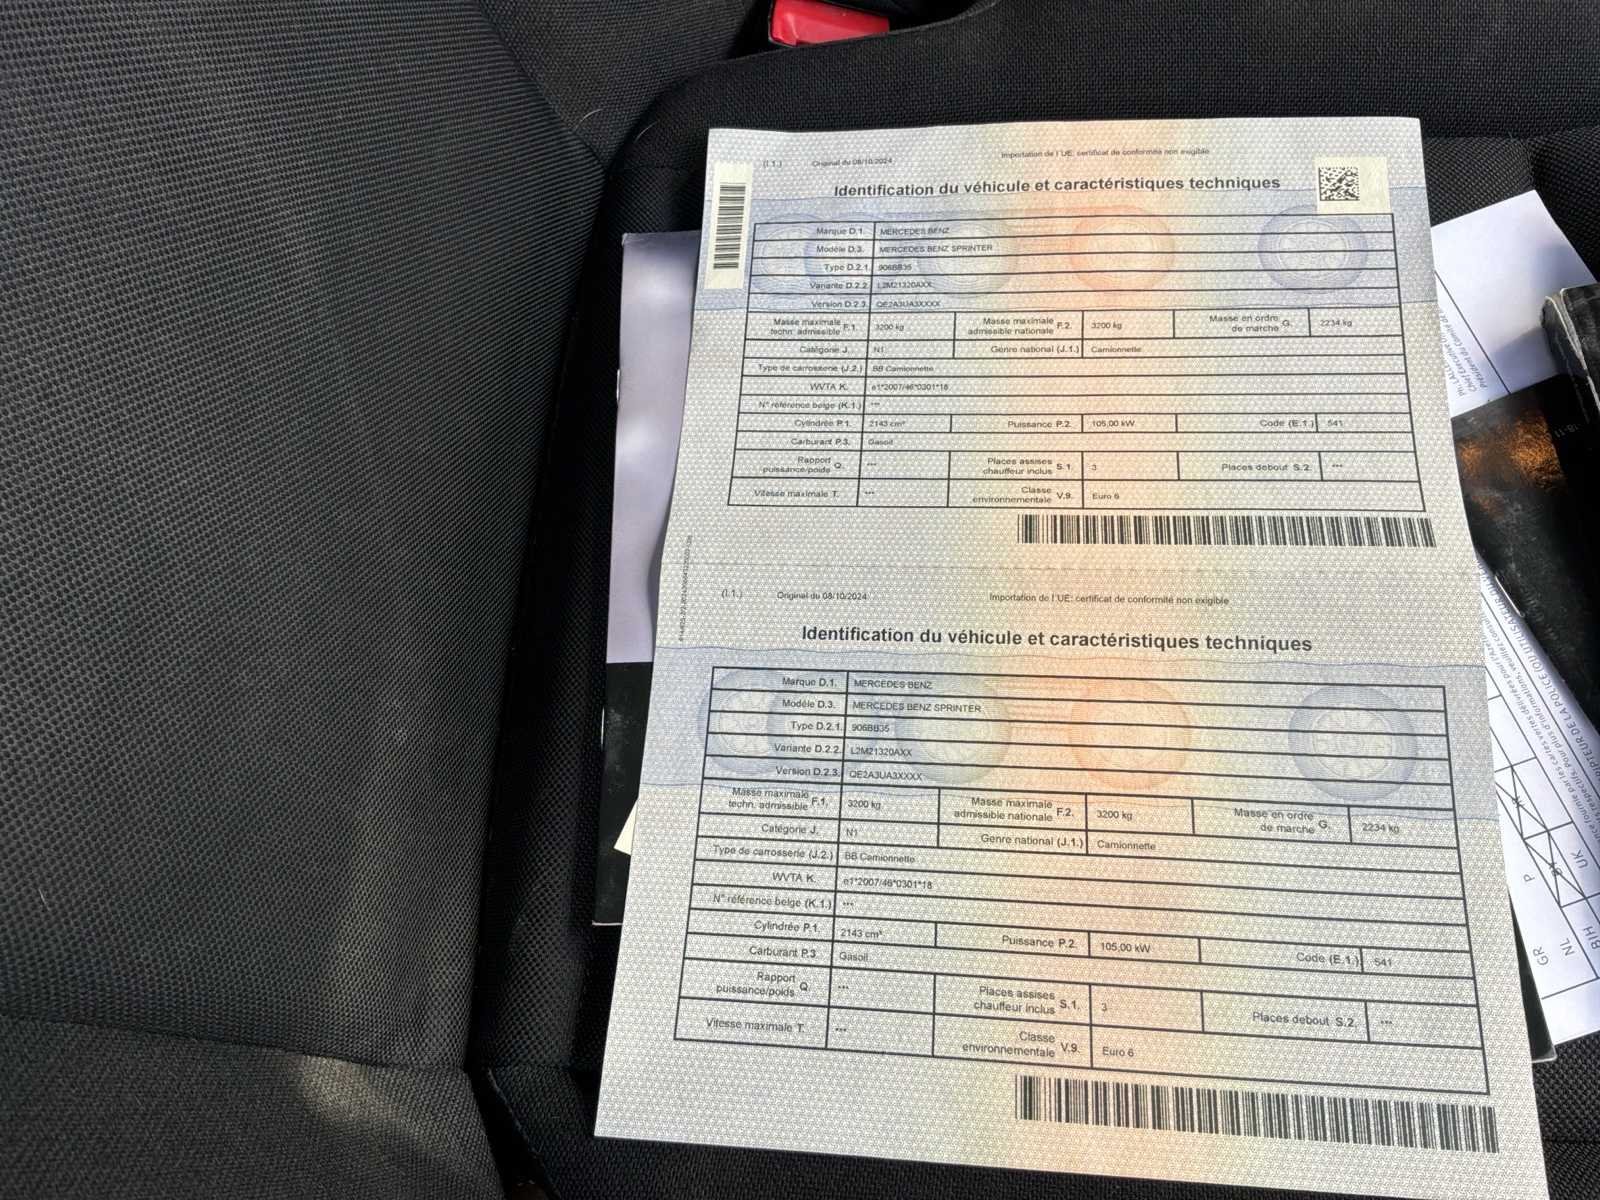 (I.1.) Original du 08/10/2024 Importation de l'UE; certificat de conformité non exigible
Identification du véhicule et caractéristiques techniques
Marque D.1. MERCEDES BENZ
Modèle D.3. MERCEDES BENZ SPRINTER
Type D.2.1. 906BB35
Variante D.2.2. L2M21320AXX
Version D.2.3. QE2A3UA3XXXX
Masse maximale techn. admissible F.1. 3200 kg Masse maximale admissible nationale F.2. 3200 kg Masse en ordre de marche G. 2234 kg
Catégorie J. N1 Genre national (J.1.) Camionnette
Type de carrosserie (J.2.) BB Camionnette
WVTA K. e1*2007/46*0301*18
N° référence belge (K.1.) ---
Cylindrée P.1. 2143 cm³ Puissance P.2. 105,00 kW Code (E.1.) 541
Carburant P.3. Gasoil
Rapport puissance/poids Q. --- Places assises chauffeur inclus S.1. 3 Places debout S.2. ---
Vitesse maximale T. --- Classe environnementale V.9. Euro 6
(I.1.) Original du 08/10/2024 Importation de l'UE; certificat de conformité non exigible
Identification du véhicule et caractéristiques techniques
Marque D.1. MERCEDES BENZ
Modèle D.3. MERCEDES BENZ SPRINTER
Type D.2.1. 906BB35
Variante D.2.2. L2M21320AXX
Version D.2.3. QE2A3UA3XXXX
Masse maximale techn. admissible F.1. 3200 kg Masse maximale admissible nationale F.2. 3200 kg Masse en ordre de marche G. 2234 kg
Catégorie J. N1 Genre national (J.1.) Camionnette
Type de carrosserie (J.2.) BB Camionnette
WVTA K. e1*2007/46*0301*18
N° référence belge (K.1.) ---
Cylindrée P.1. 2143 cm³ Puissance P.2. 105,00 kW Code (E.1.) 541
Carburant P.3 Gasoil
Rapport puissance/poids Q. --- Places assises chauffeur inclus S.1. 3 Places debout S.2. ---
Vitesse maximale T. --- Classe environnementale V.9. Euro 6
P
UK
GR
NL
B/H